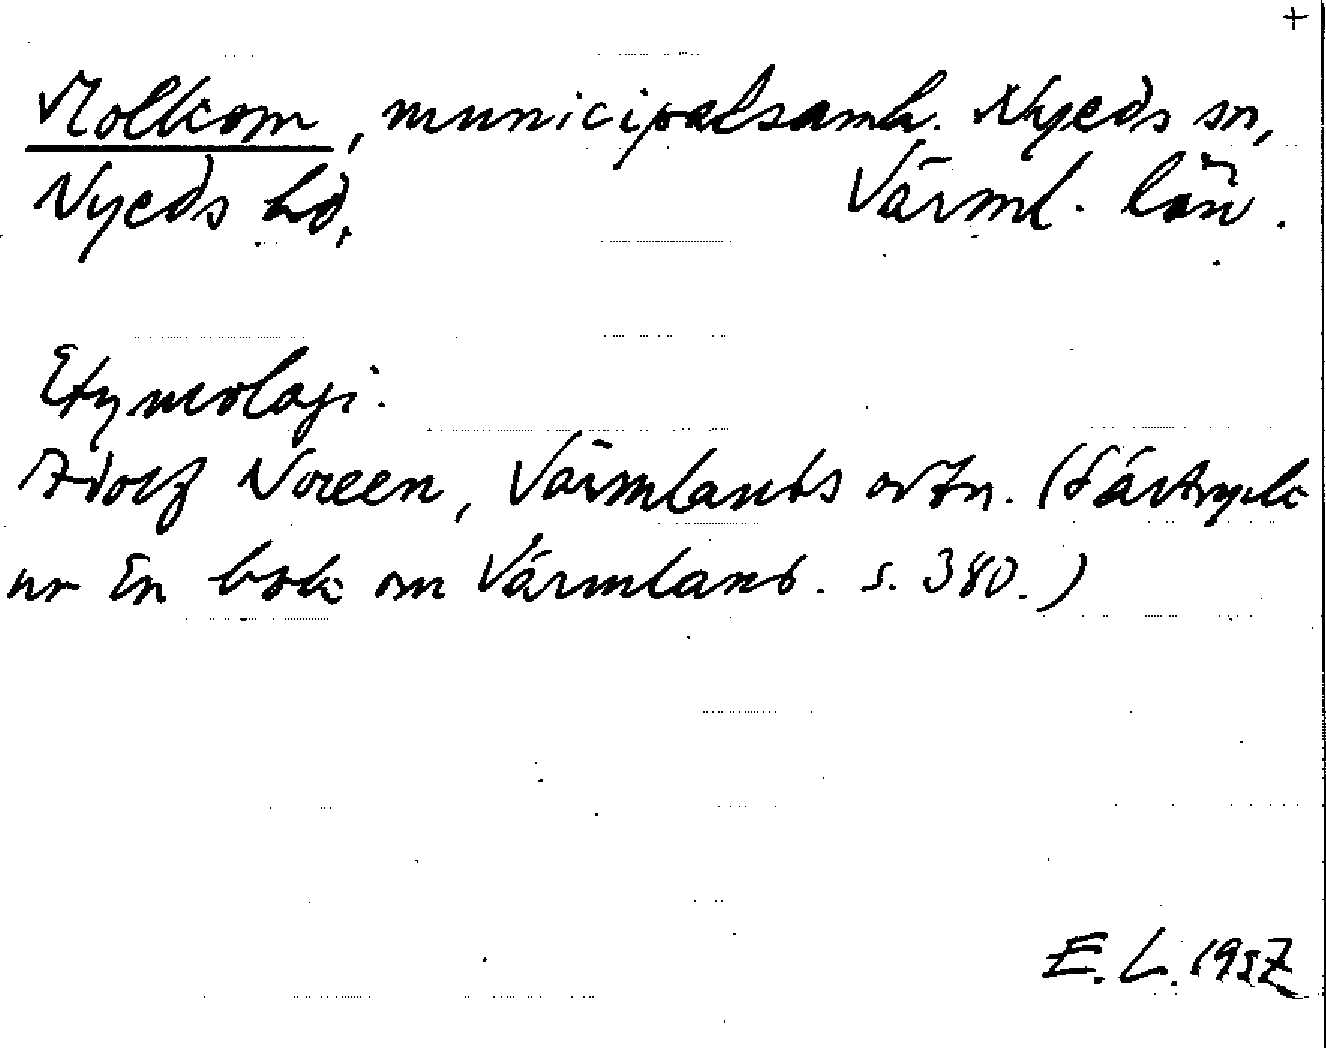 +
Molkom, municipalsamh. Nyeds sn,
Nyeds hd. Värml. län.
Etymologi.
Adolf Noreen, Värmlands ortn. (Särtryck
ur En bok om Värmland. s. 380.)
E. L. 1952